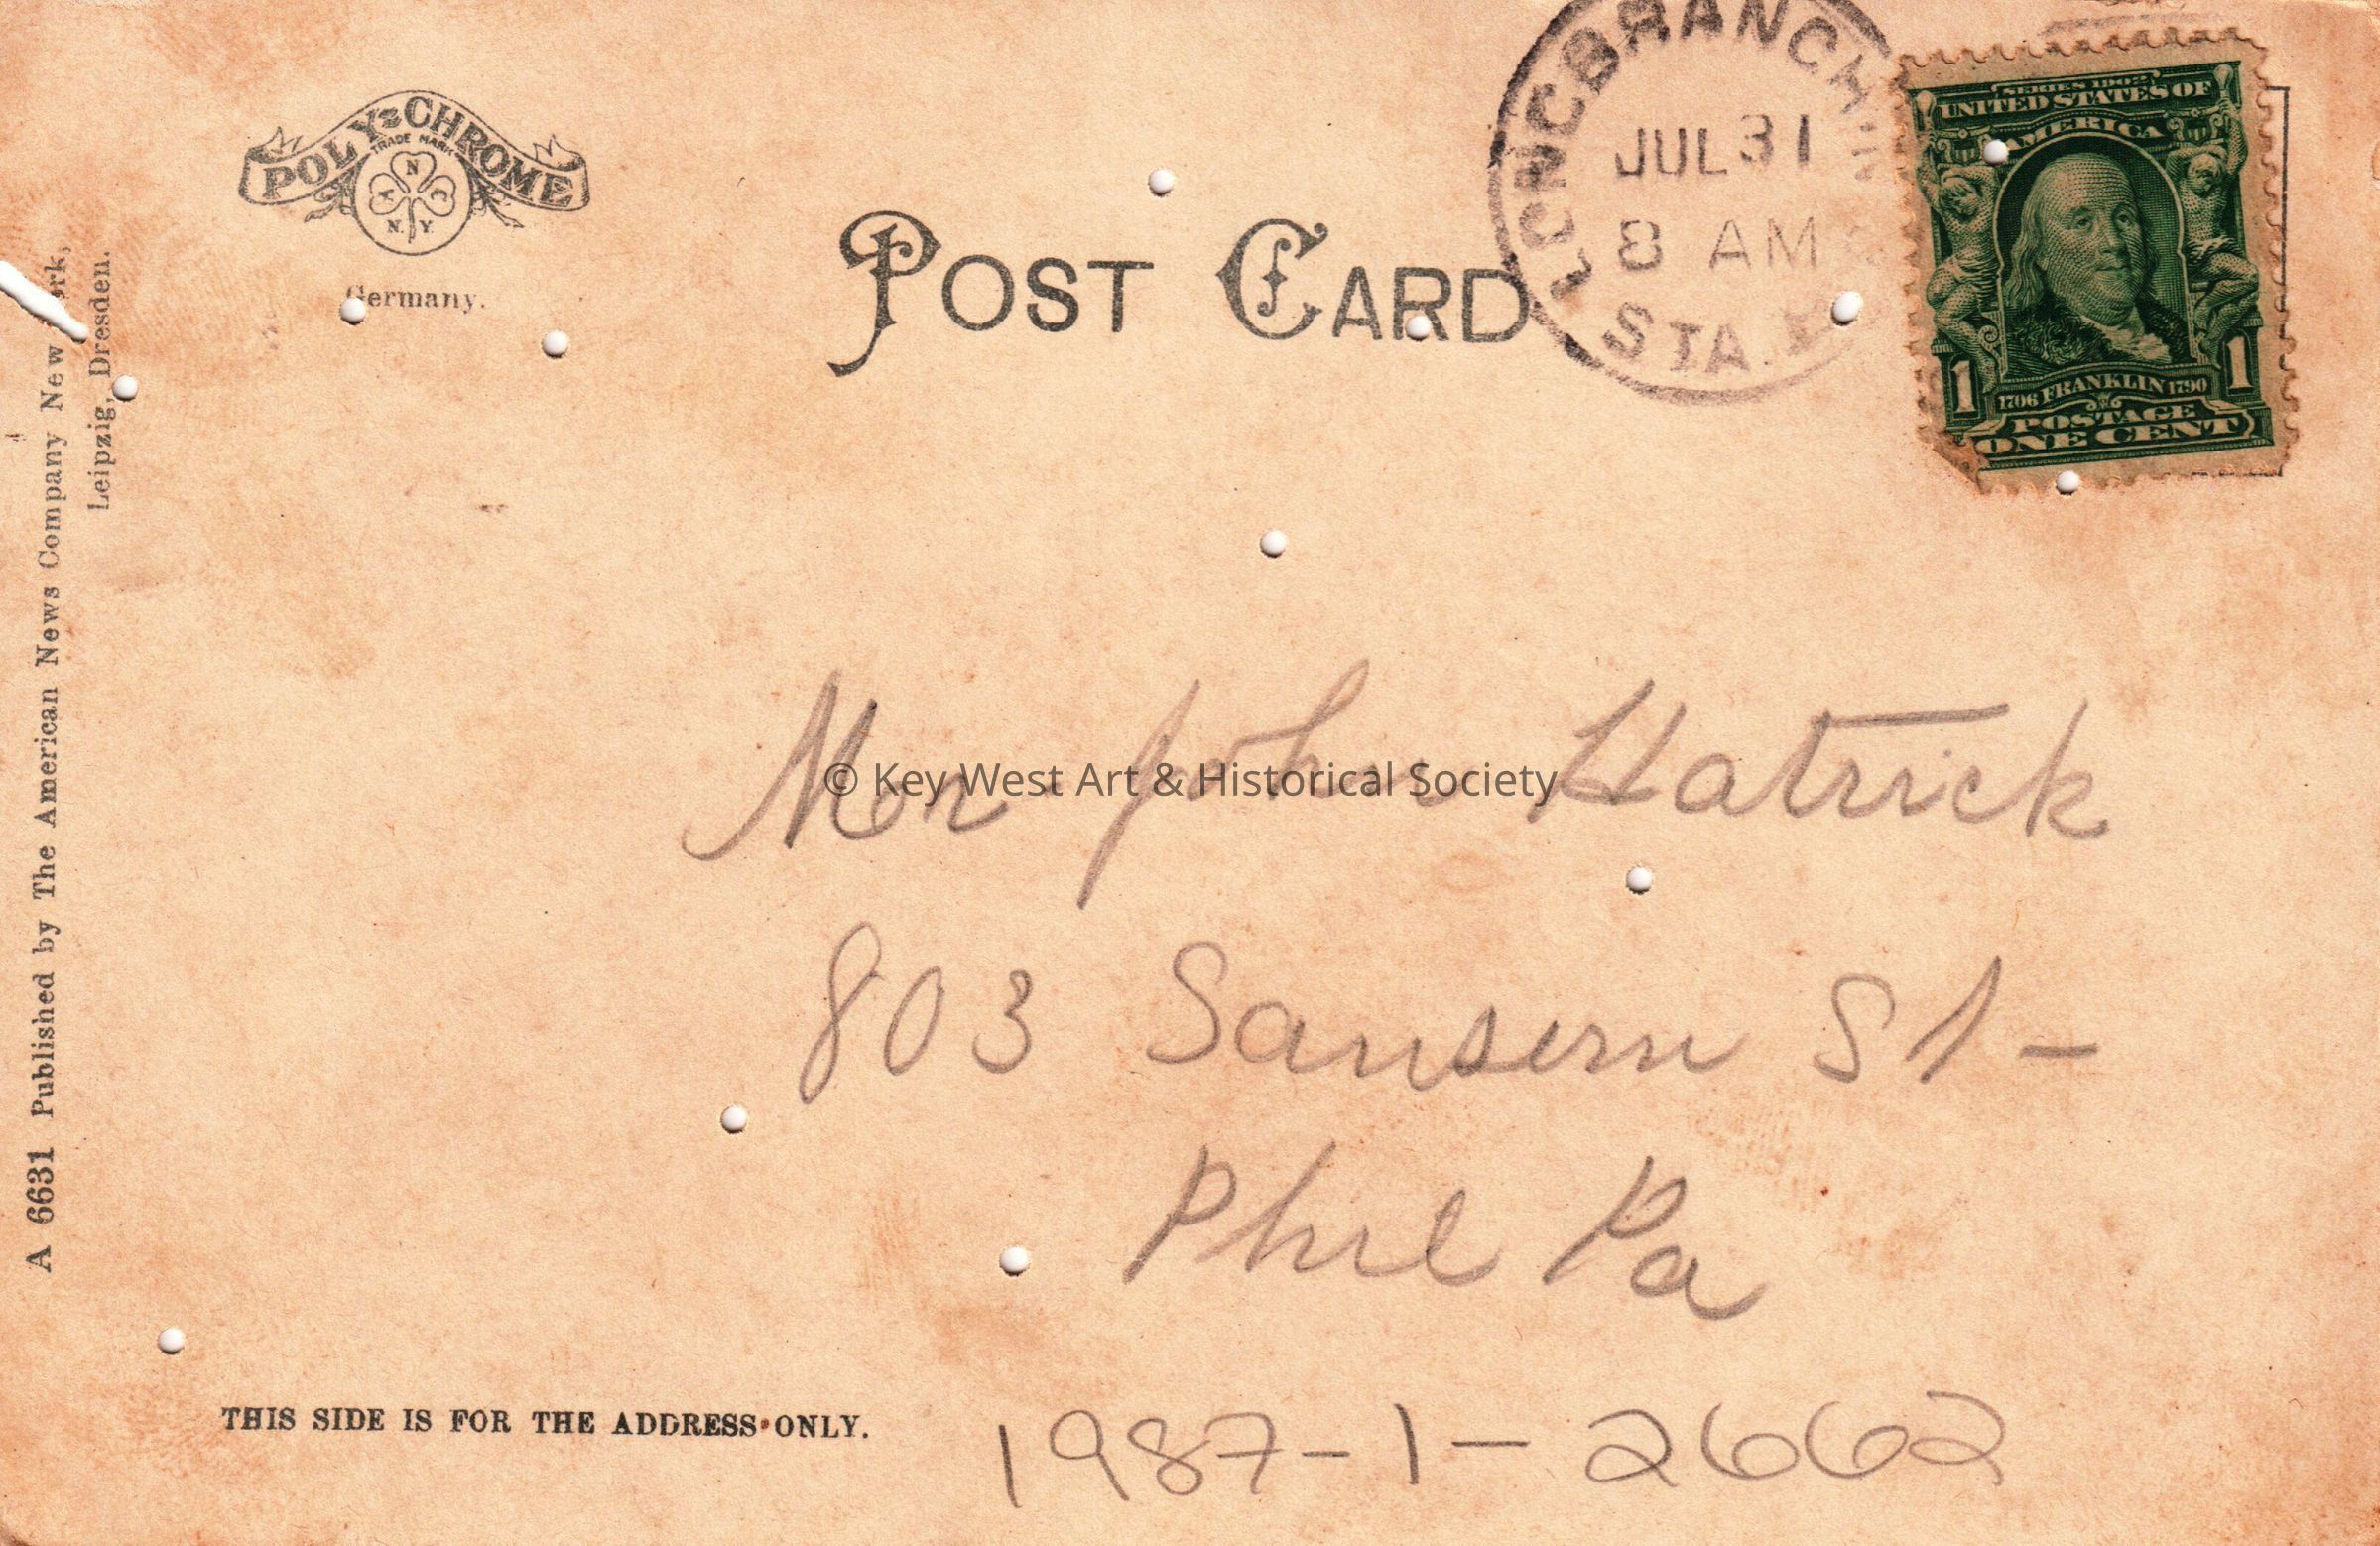 POLY-CHROME
TRADE MARK
A N C
N. Y.
Germany.
POST CARD
LONG BRANCH
JUL 31
8 AM
STA.
SERIES 1902
UNITED STATES OF
AMERICA
1706 FRANKLIN 1790
1 1
POSTAGE
ONE CENT
A 6631 Published by The American News Company New York,
Leipzig, Dresden.
Mr John Hatrick
© Key West Art & Historical Society
803 Sansern St-
Phil Pa
THIS SIDE IS FOR THE ADDRESS ONLY.
1987-1-2662